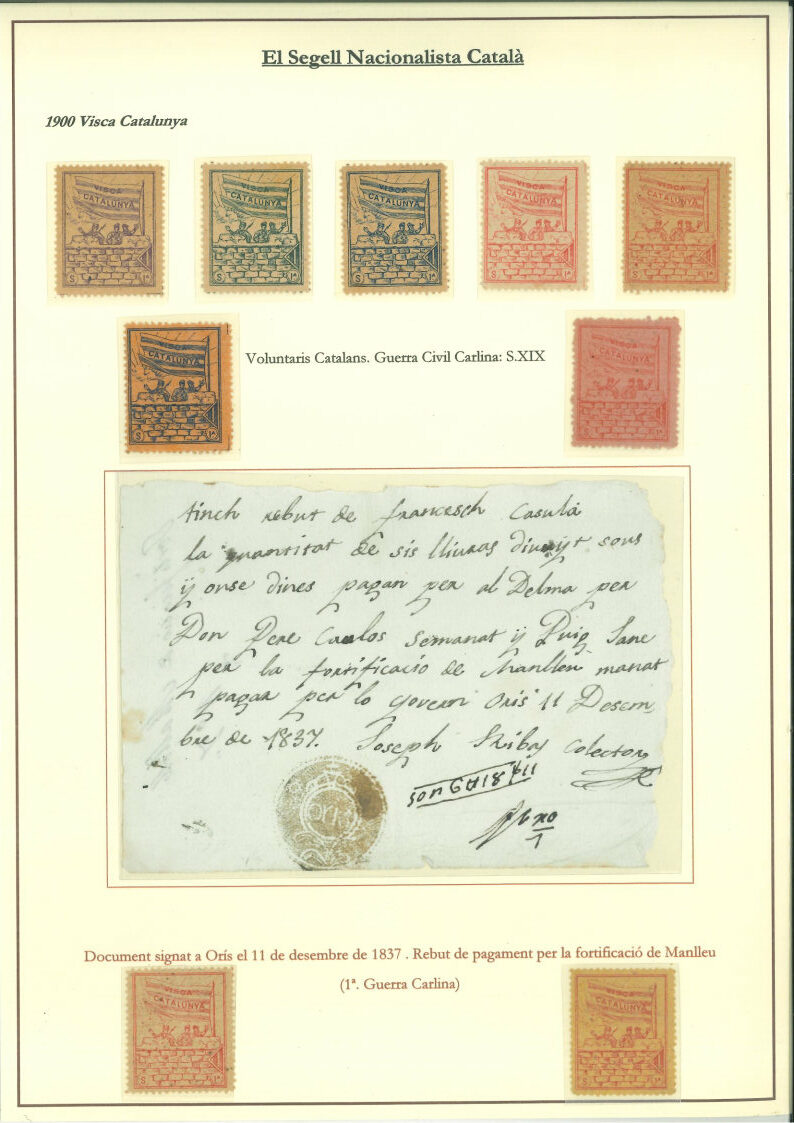 El Segell Nacionalista Català
1900 Visca Catalunya
VISCA
CATALUNYA
S 1ª
VISCA
CATALUNYA
S 1ª
VISCA
CATALUNYA
S 1ª
VISCA
CATALUNYA
S 1ª
VISCA
CATALUNYA
S 1ª
VISCA
CATALUNYA
S 1ª
Voluntaris Catalans. Guerra Civil Carlina: S.XIX
VISCA
CATALUNYA
S 1ª
tinch rebut de francesch Casula
la quantitat de sis lliuras divuyt sous
ÿ onse dines pagan per al Delma per
Don Pere Carlos Semanat ÿ Puig
per la fortificacio de Manlleu manat
pagar per lo govern Orís 11 Desem-
bre de 1837. Joseph Ribas Colector
son 6 ₶ 18 11
ORIS
Document signat a Orís el 11 de desembre de 1837 . Rebut de pagament per la fortificació de Manlleu
(1ª. Guerra Carlina)
VISCA
CATALUNYA
S 1ª
VISCA
CATALUNYA
S 1ª